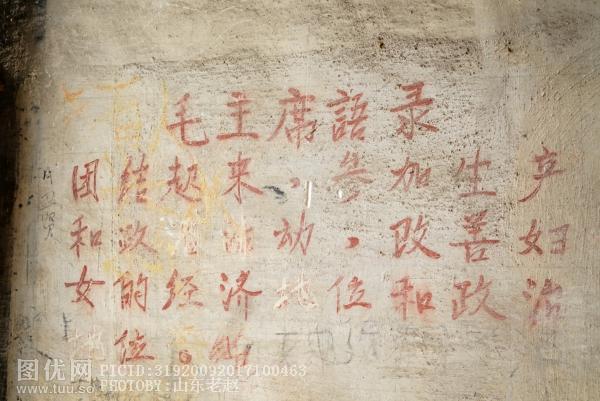 毛主席語录
团结起来,參加生产
和政治活动,改善妇
女的经济地位和政治
地位。
图优网 PICID:31920092017100463
www.tuu.so PHOTOBY:山东老赵